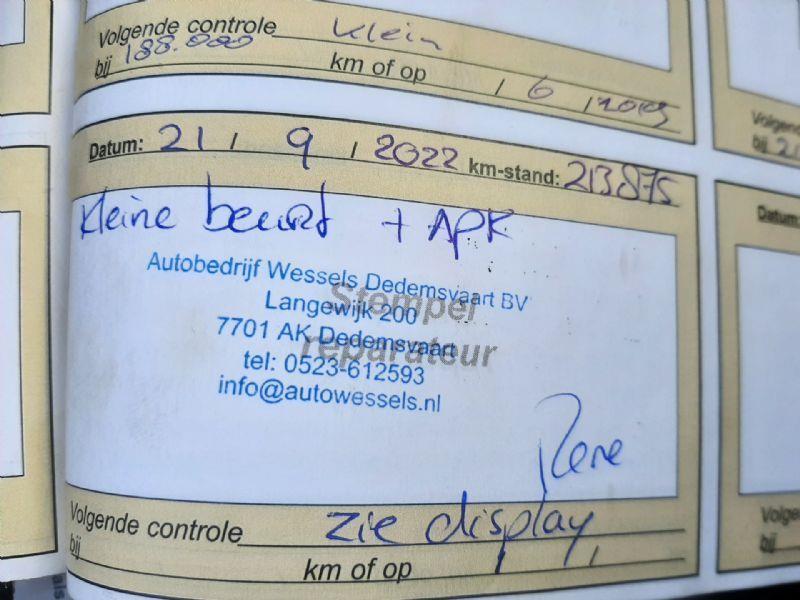 Volgende controle Klein
bij 188.000 km of op / 6 / 2019
Datum: 21 / 9 / 2022 km-stand: 213875
Kleine beurt + APK
Autobedrijf Wessels Dedemsvaart BV
Langewijk 200
Stempel
7701 AK Dedemsvaart
reparateur
tel: 0523-612593
info@autowessels.nl
Rene
Volgende controle zie display
bij km of op / /
Volgende
bij 2
Datum:
Volge
bij